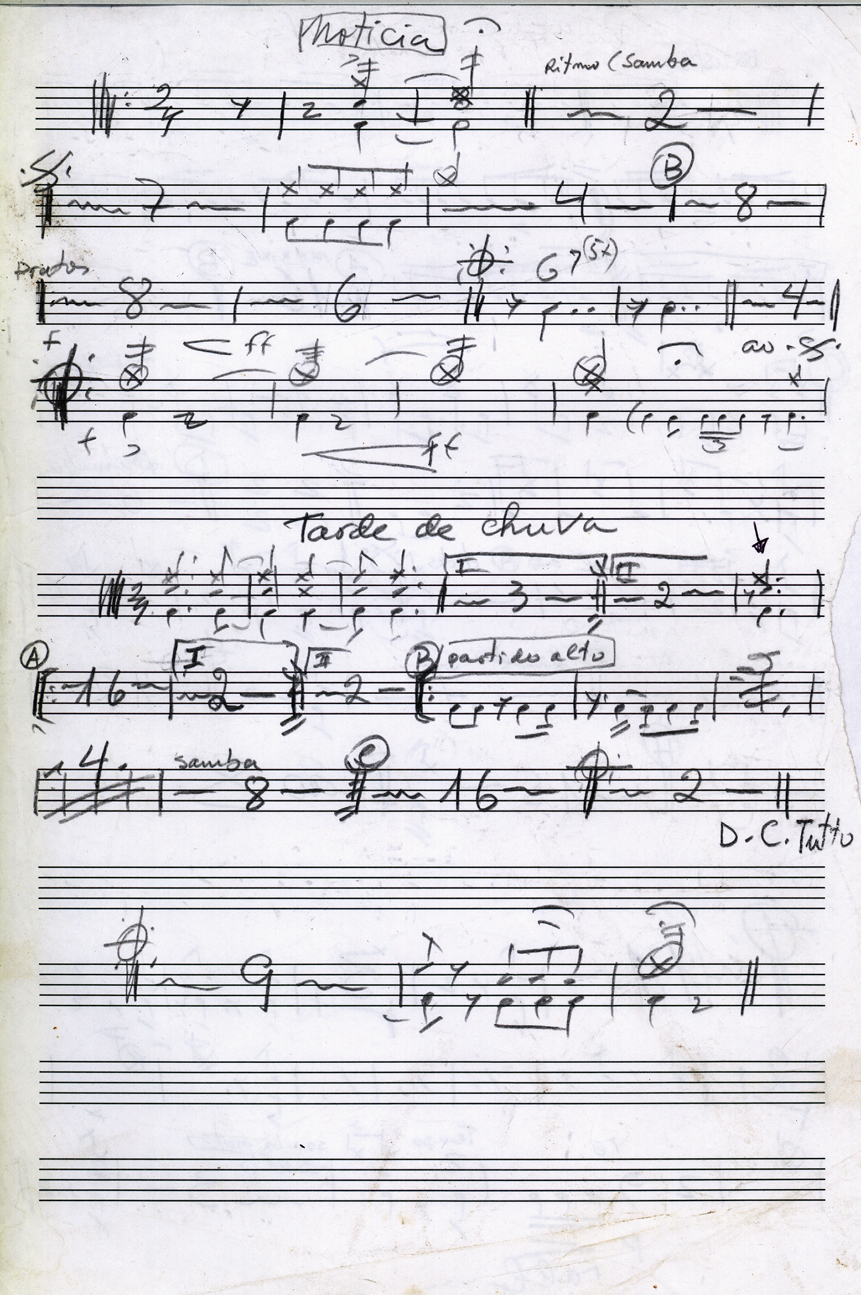 Noticia
Ritmo (Samba
2
7 4 B 8
Pratos 8 6 67(5x) 4
f ff ao
f ff
Tarde de chuva
I 3 II 2
A 16 I 2 II 2 B partido alto
4 samba 8 C 16 2
D.C. Tutto
9